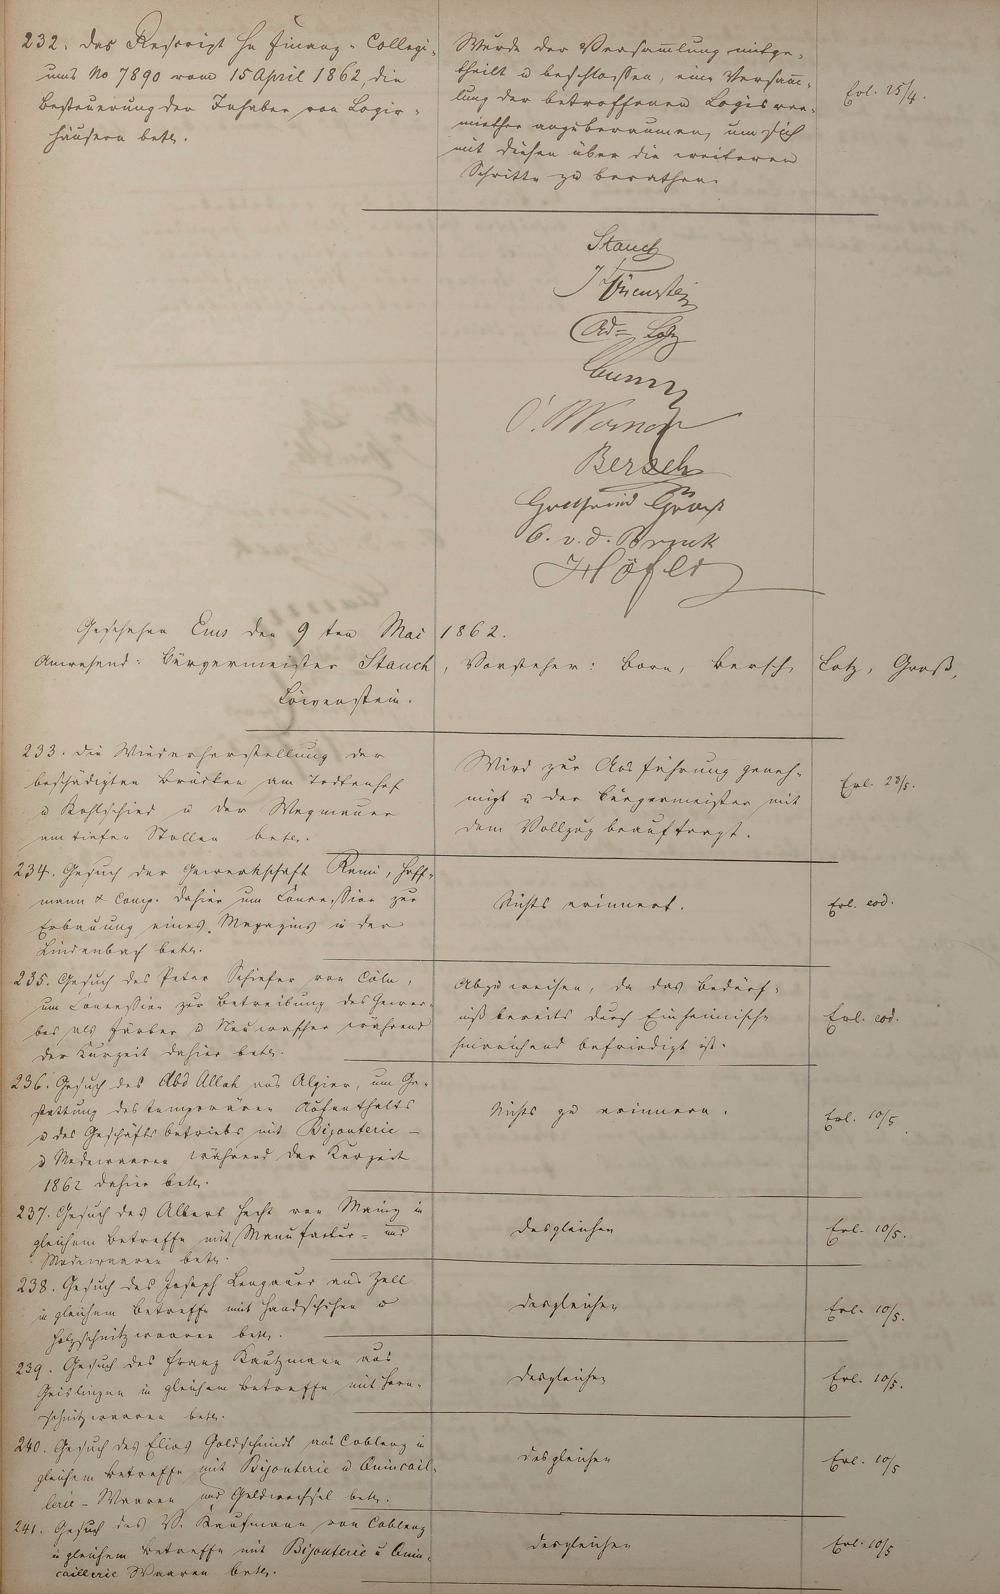 232. Das Rescript Hz. Finanz-Collegi-
ums No 7890 vom 15 April 1862, die
Besteuerung der Inhaber von Logir-
häusern betr.
Wurde der Versammlung mitge-
theilt u beschlossen, eine Versamm-
lung der betroffenen Logisver-
miether anzuberaumen, um sich
mit diesen über die weiteren
Schritte zu berathen.
Erl. 25/4.
Stauch
Ad. Lotz
Bersch
Gottfried Groß
C. v. d. Brink
Höfer
Geschehen Ems den 9ten Mai 1862.
Anwesend: Bürgermeister Stauch, Vorsteher: Born, Bersch, Lotz, Groß,
Löwenstein.
233. Die Wiederherstellung der
beschädigten Brücken am Todtenhof
u Kohlschied u der Wegmauer
am tiefen Stollen betr.
Wird zur Ausführung geneh-
migt u der Bürgermeister mit
dem Vollzug beauftragt.
Erl. 23/5.
234. Gesuch der Gewerkschaft Remi, Hoff-
mann & Comp. dahier um Concession zur
Erbauung eines Magazins in der
Lindenbach betr.
Nichts erinnert.
Erl. eod.
235. Gesuch des Peter Schiefer von Cöln,
um Concession zur Betreibung des Gewer-
bes als Färber u Neuwascher während
der Kurzeit dahier betr.
Abzuweisen, da das Bedürf-
niß bereits durch Einheimische
hinreichend befriedigt ist.
Erl. eod.
236. Gesuch des Abd Allah aus Algier, um Ge-
stattung des temporären Aufenthalts
u des Geschäftsbetriebs mit Bijouterie-
u Modewaaren während der Kurzeit
1862 dahier betr.
Nichts zu erinnern.
Erl. 10/5.
237. Gesuch des Albert Hecht von Mainz in
gleichem Betreffe mit Manufactur- und
Modewaaren betr.
desgleichen
Erl. 10/5.
238. Gesuch des Joseph Lengauer aus Zell
in gleichem Betreffe mit Handschuhen u
Holzschnitzwaaren betr.
desgleichen
Erl. 10/5.
239. Gesuch des Franz Kautzmann aus
Geislingen in gleichem Betreffe mit Horn-
schnitzwaaren betr.
desgleichen
Erl. 10/5.
240. Gesuch des Elias Goldschmidt aus Coblenz in
gleichem Betreffe mit Bijouterie u Quincail-
lerie-Waaren und Geldwechsel betr.
desgleichen
Erl. 10/5
241. Gesuch des W. Kaufmann von Coblenz
in gleichem Betreffe mit Bijouterie u Quin-
caillerie Waaren betr.
desgleichen
Erl. 10/5